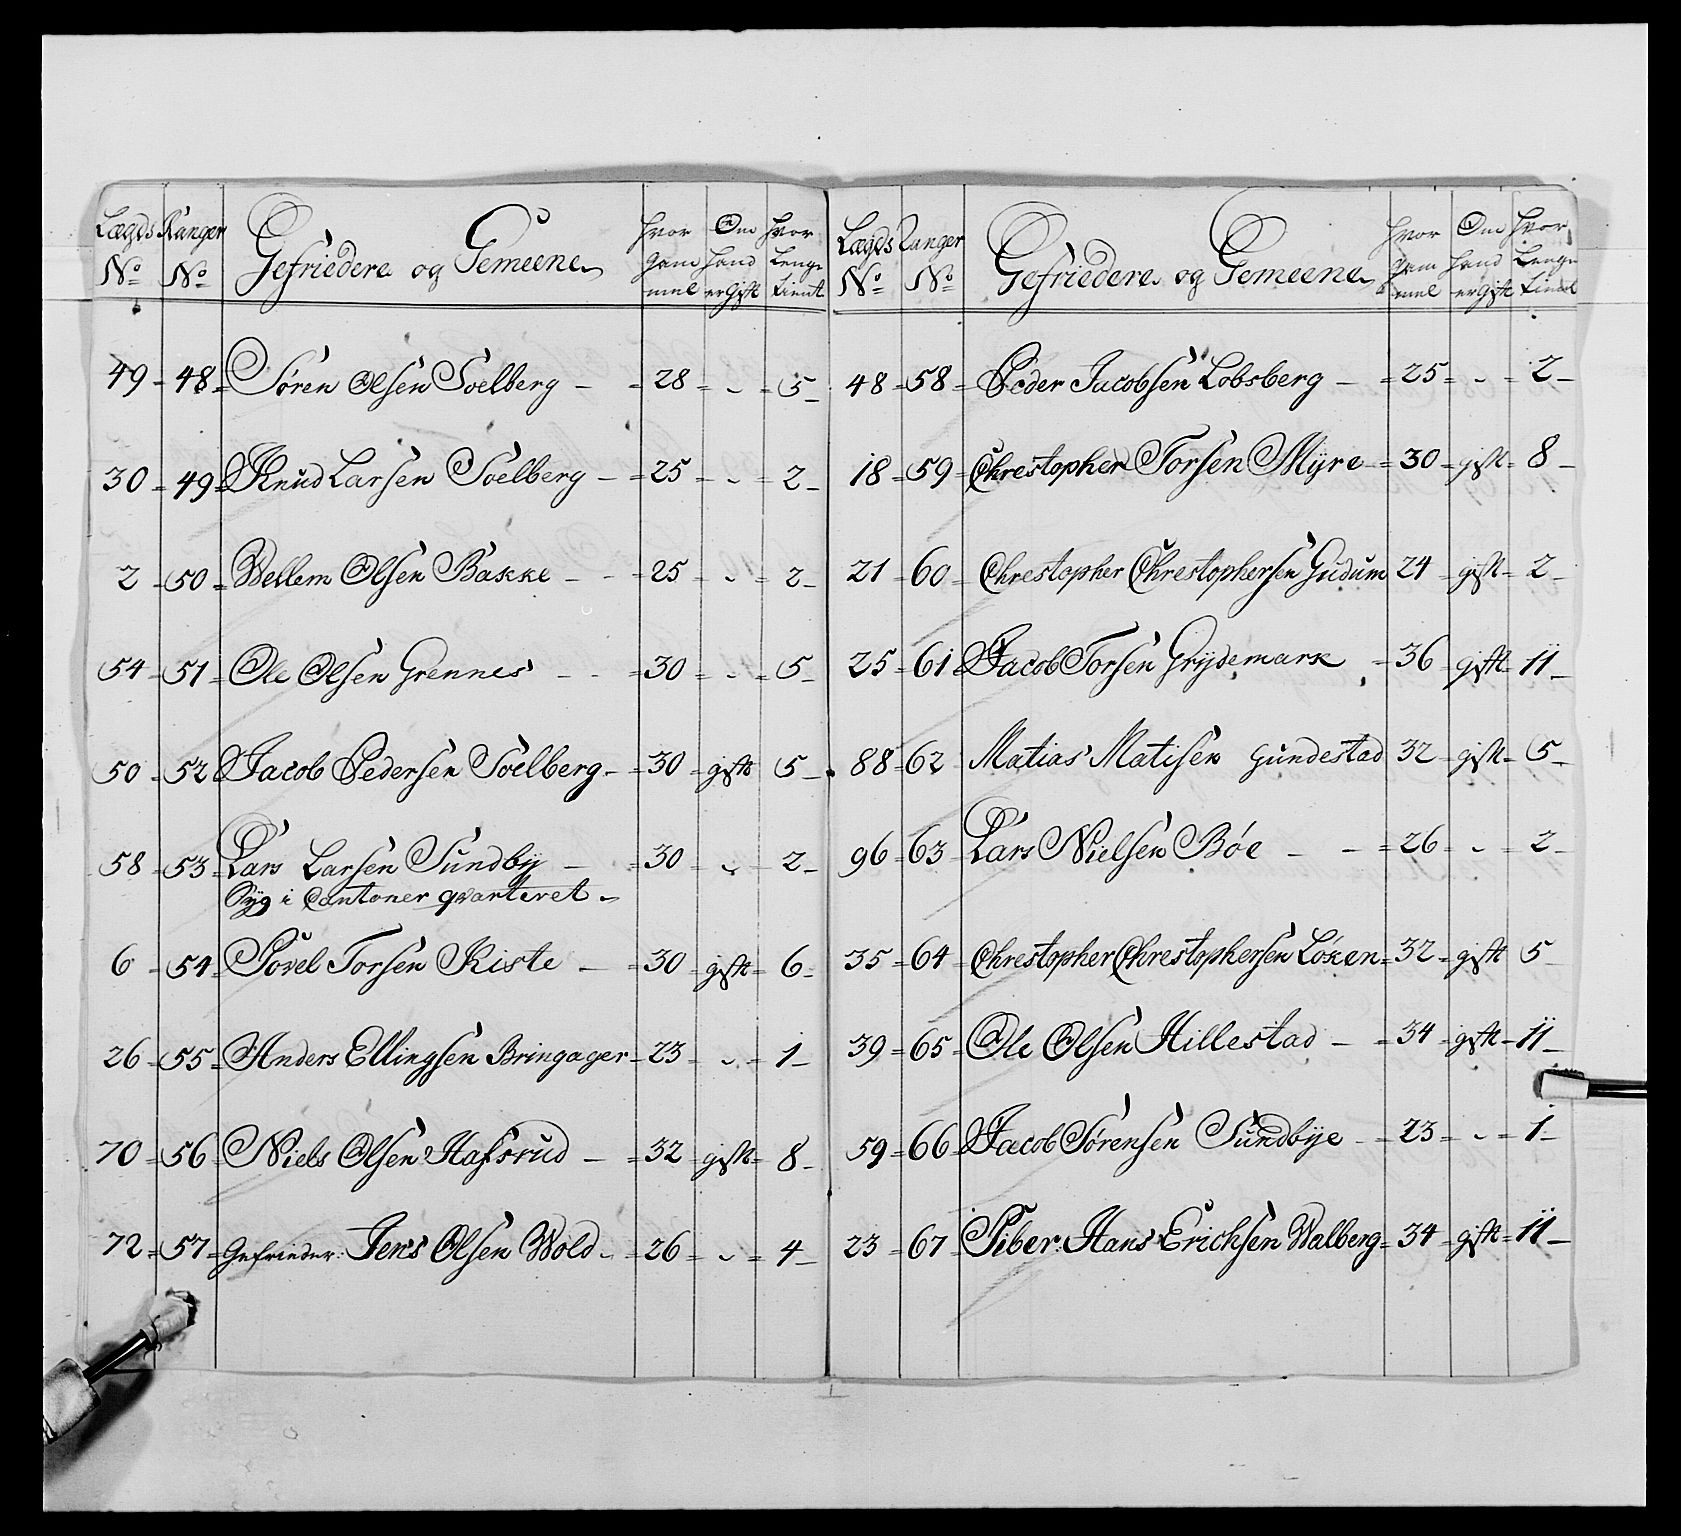 Lægds Ranger Gefriedere og Gemeene Hvor Om Hvor
No No gam hand Lenge
mel er Gift tient
49 - 48 - Sören Olsen Soelberg - 28 - „ - 5 -
30 - 49 - Knud Larsen Soelberg - 25 - „ - 2 -
2 - 50 - Wellem Olsen Bakke - - 25 - „ - 2 -
54 - 51 - Ole Olsen Grennes - - 30 - „ - 5 -
50 - 52 Jacob Pedersen Soelberg - 30 - gift 5 -
58 - 53 - Lars Larsen Sundbÿ - 30 - „ - 2 -
Syg i Cantoner qvarteret -
6 - 54 - Povel Torsen Kiste - 30 - gift - 6 -
26 - 55 - Anders Ellingsen Bringager - 23 - „ - 1 -
70 - 56 - Niels Olsen Hafsrud - 32 - gift - 8 -
72 - 57 - Gefrieder: Jens Olsen Wold - 26 - „ - 4 -
Lægds Ranger Gefriedere og Gemeene Hvor Om Hvor
No No gam hand Lenge
mel er Gift tient
48 - 58 - Peder Jacobsen Lobsberg - 25 - „ - 2 -
18 - 59 - Chrestopher Torsen Mÿre - 30 - gift - 8 -
21 - 60 - Chrestopher Chrestophersen Gudum 24 - gift - 2 -
25 - 61 Jacob Torsen Grÿdemark - 36 - gift - 11 -
88 - 62 Matias Matisen Gundestad 32 - gift - 5 -
96 - 63 - Lars Nielsen Bøe - - 26 - „ - 2 -
35 - 64 - Chrestopher Chrestophersen Løken - 32 - gift 5 -
39 - 65 - Ole Olsen Hillestad - 34 - gift - 11 -
59 - 66 - Jacob Sörensen Sundbÿe - 23 - „ - 1 -
23 - 67 Piber: Hans Erichsen Walberg - 34 - gift - 11 -